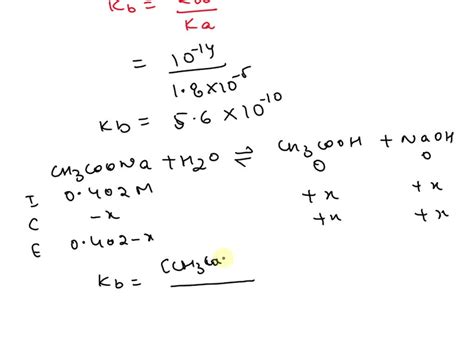 Kb = Kw
Ka
= 10⁻¹⁴
1.8×10⁻⁵
Kb = 5.6 ×10⁻¹⁰
CH3COONa + H2O ⇌ CH3COOH + NaOH
I 0.402M 0 0
C -x +x +x
E 0.402-x +x +x
Kb = [CH3Co.